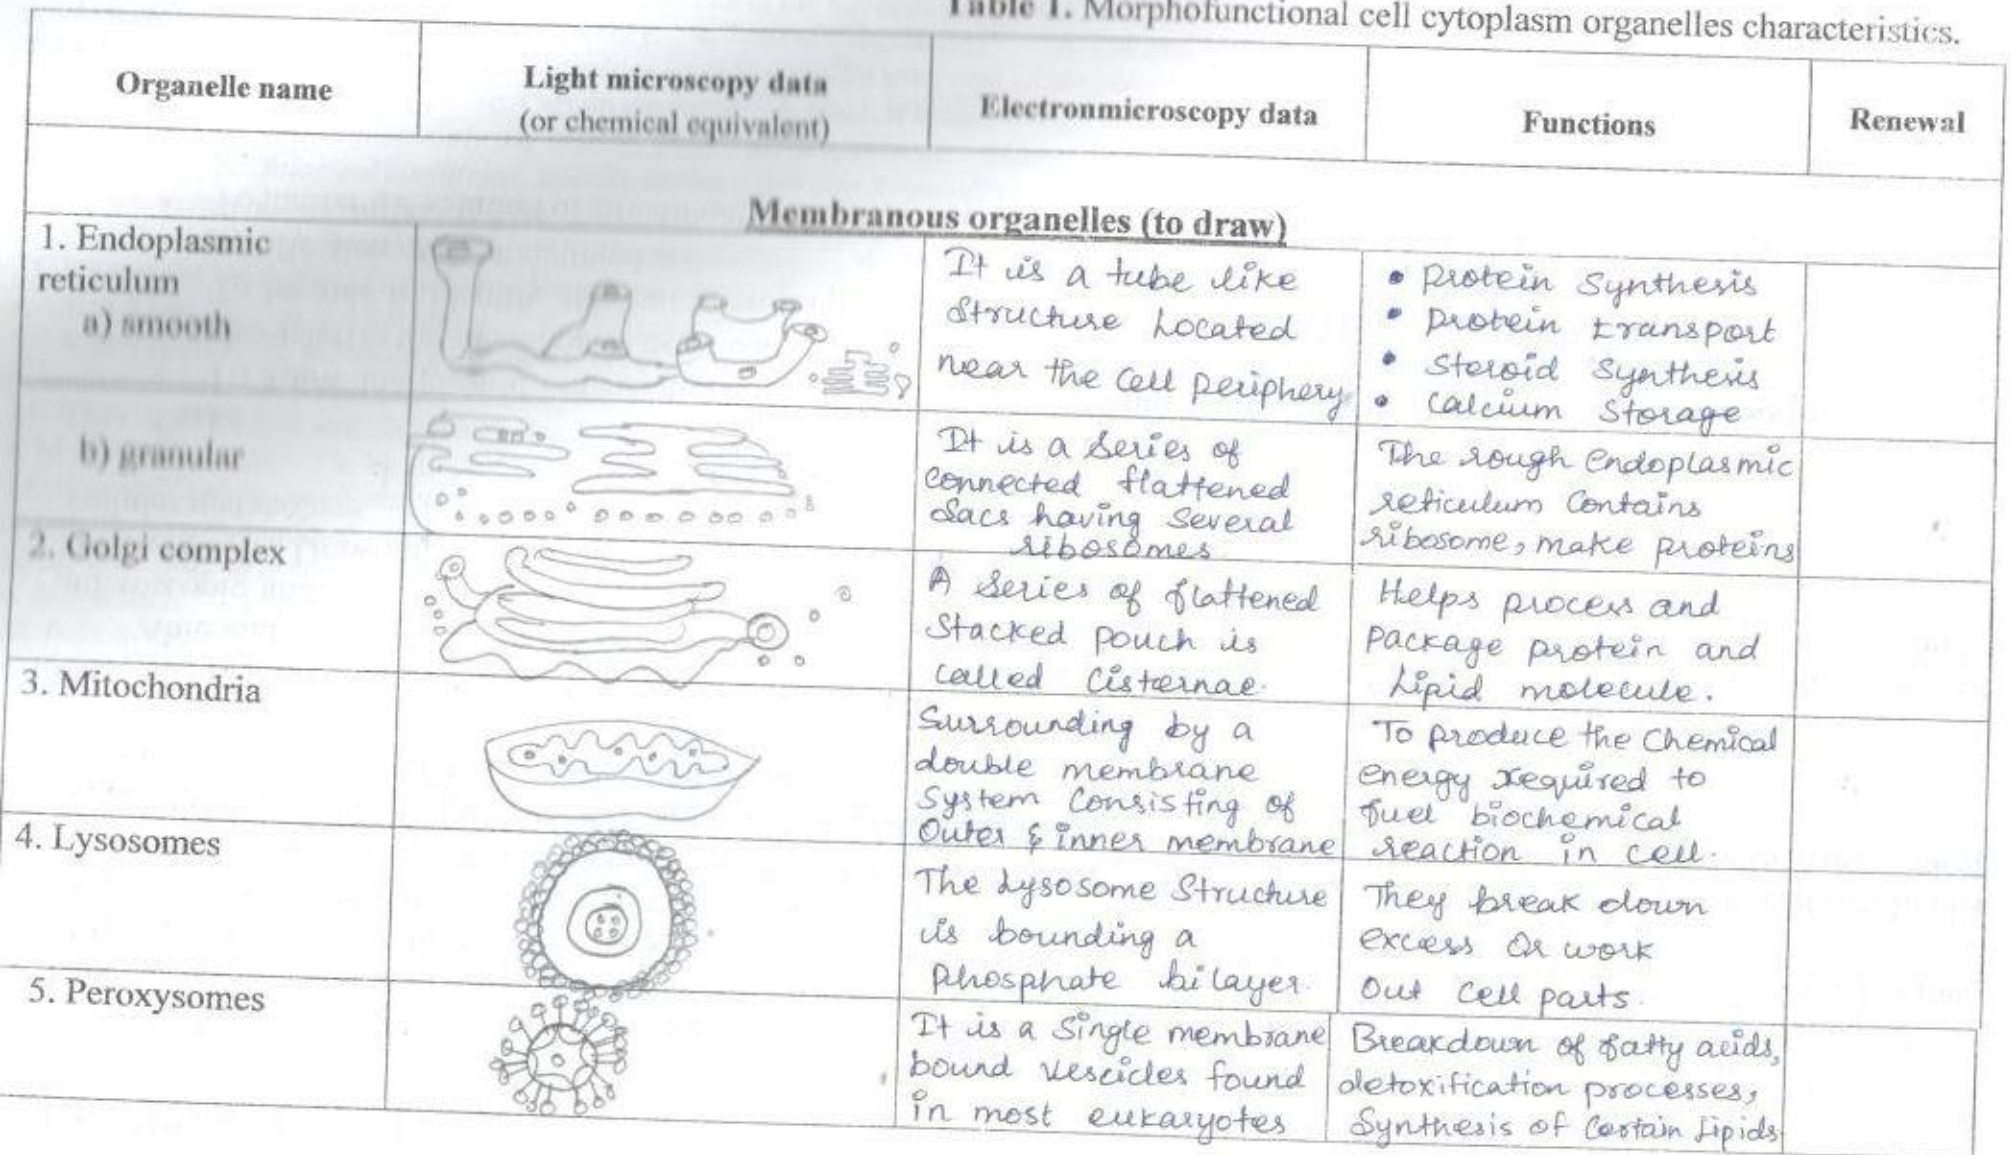 Table 1. Morphofunctional cell cytoplasm organelles characteristics.
Organelle name
Light microscopy data
(or chemical equivalent)
Electronmicroscopy data
Functions
Renewal
Membranous organelles (to draw)
1. Endoplasmic
reticulum
a) smooth
It is a tube like
structure Located
near the cell periphery
• Protein Synthesis
• Protein transport
• Steroid Synthesis
• Calcium Storage
b) granular
It is a series of
connected flattened
sacs having several
ribosomes
The rough endoplasmic
reticulum contains
ribosome, make proteins
2. Golgi complex
A series of flattened
stacked pouch is
called Cisternae.
Helps process and
package protein and
Lipid molecule.
3. Mitochondria
Surrounding by a
double membrane
system consisting of
Outer & inner membrane
To produce the chemical
energy required to
fuel biochemical
reaction in cell.
4. Lysosomes
The Lysosome Structure
is bounding a
Phosphate bilayer.
They break down
excess or work
out cell parts.
5. Peroxysomes
It is a single membrane
bound vescicles found
in most eukaryotes
Breakdown of fatty acids,
detoxification processes,
Synthesis of Certain Lipids